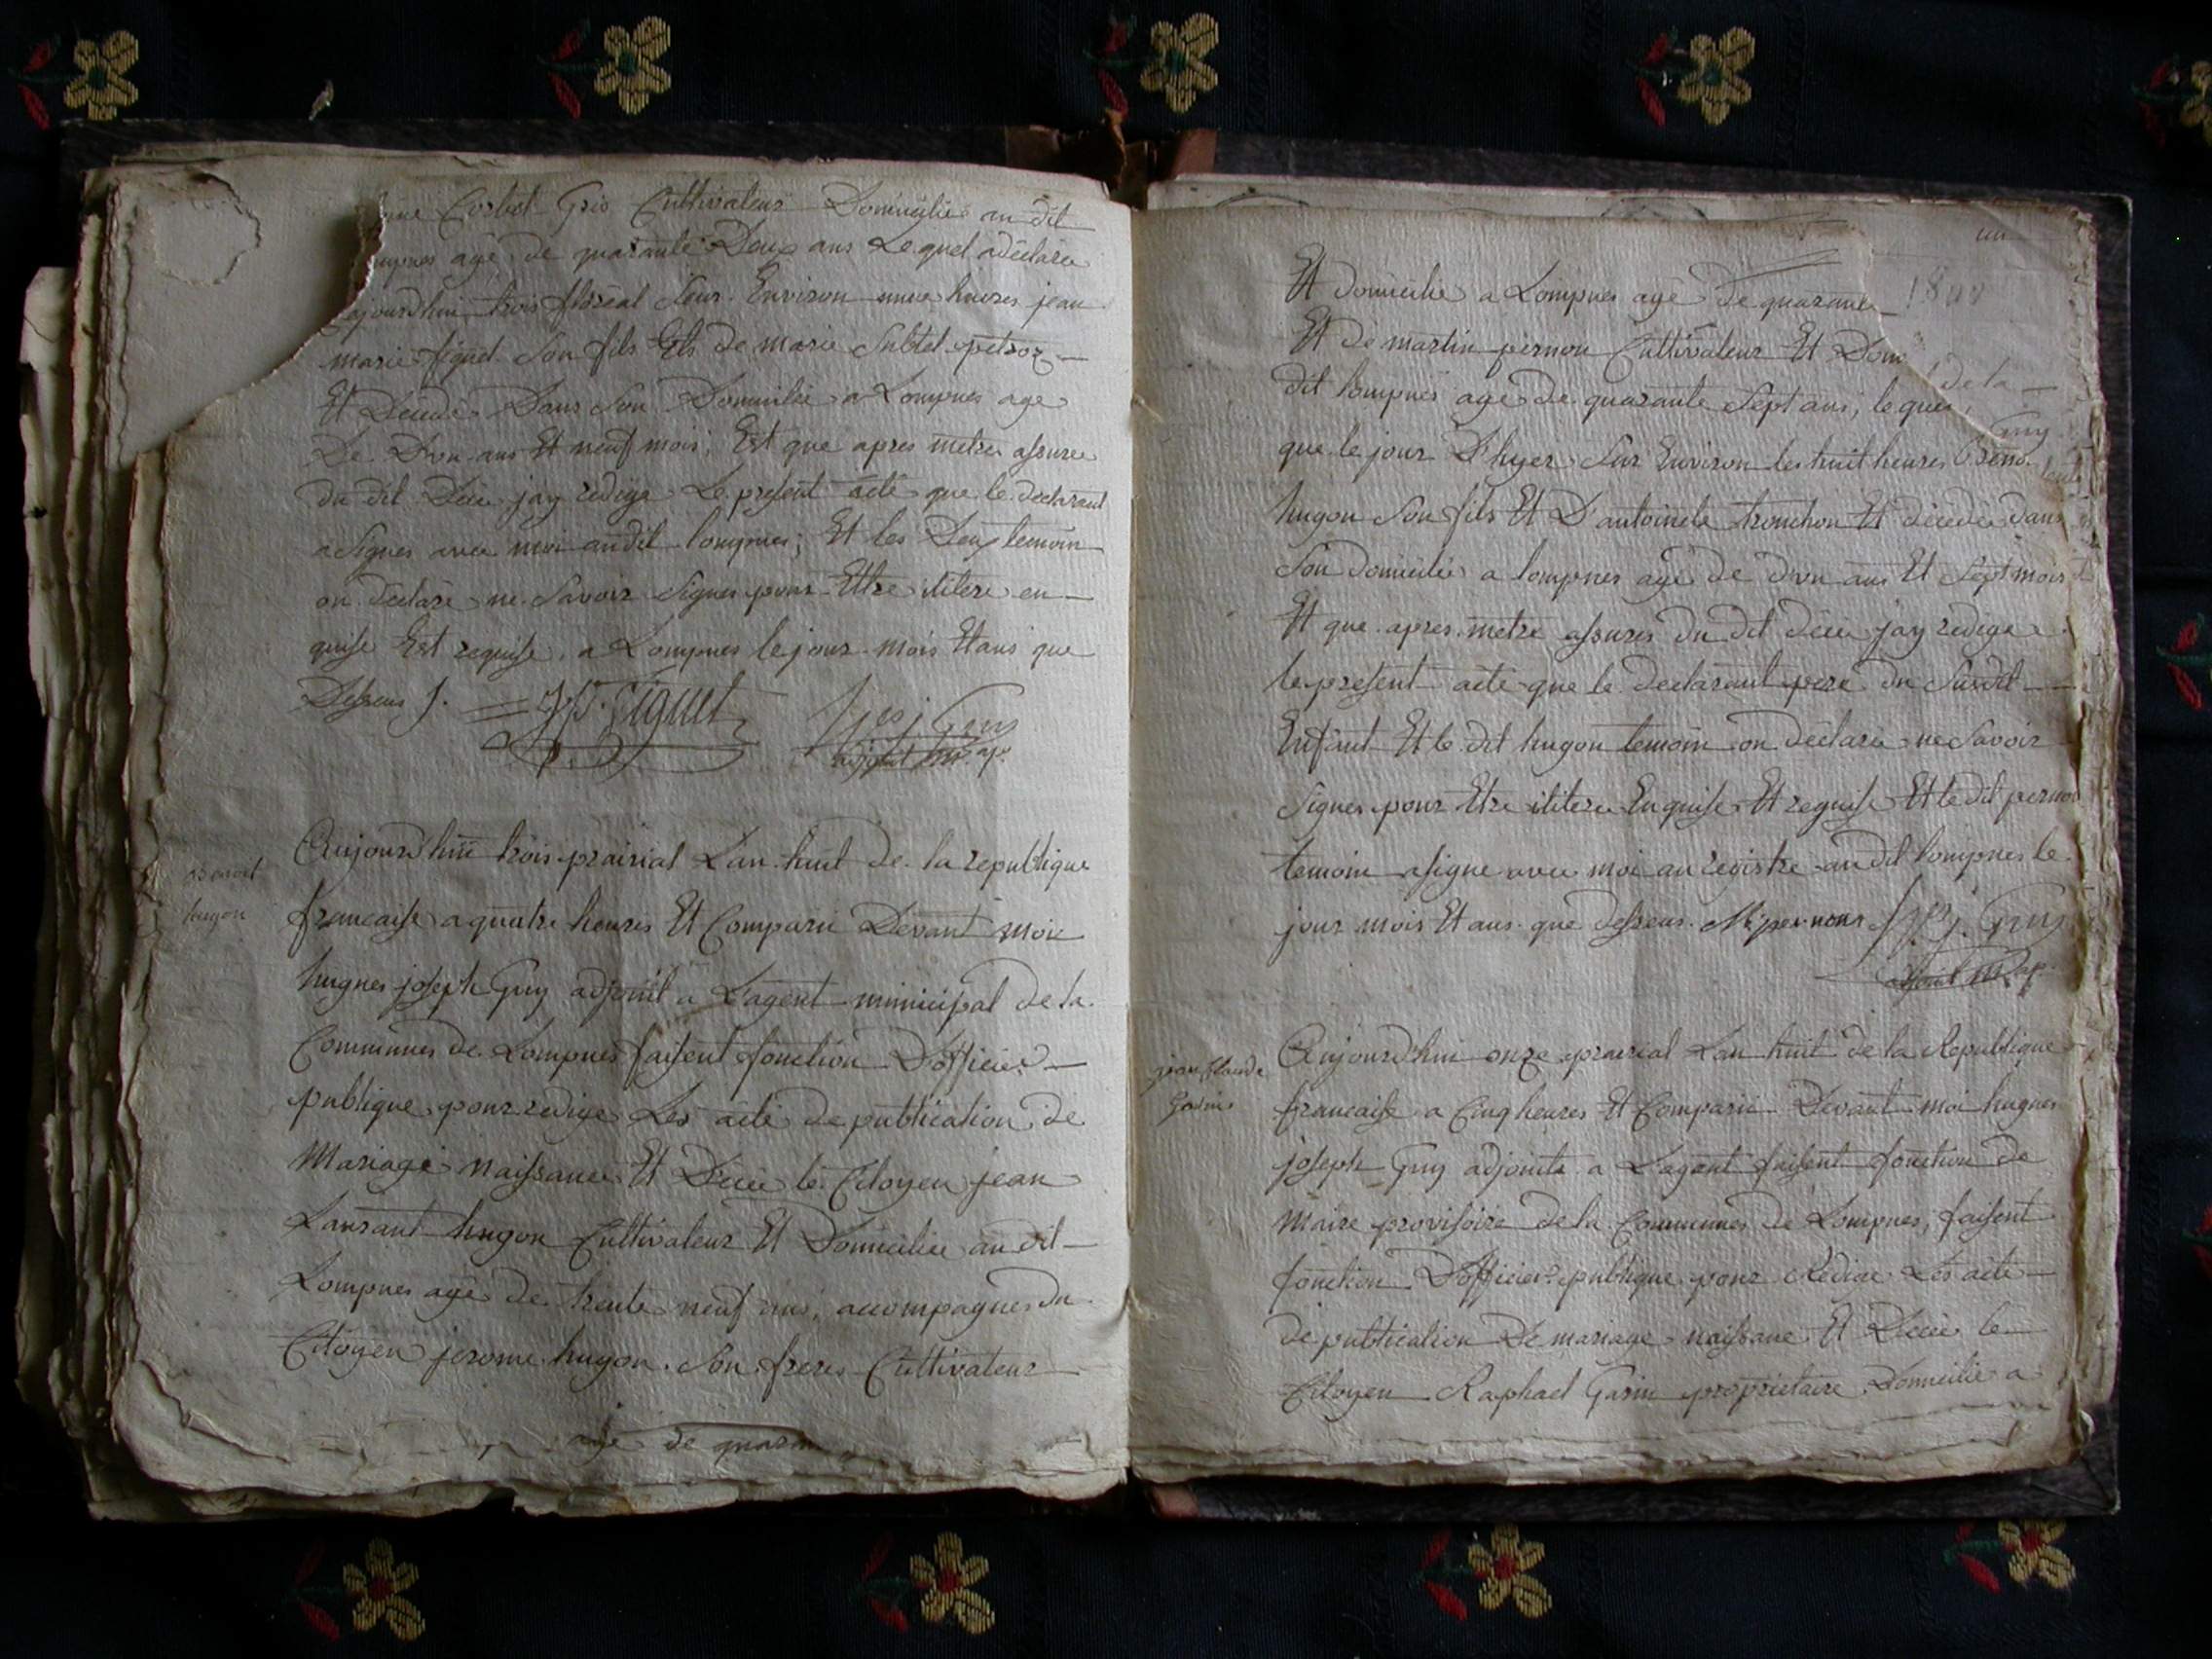 Corbet Gris Cultivateur Domicilie au dit
agé de quarante Deux ans Le quel a déclaré
trois floréal Seur Environ onze heures jean
marie figuet Son fils Et de marie Subtet petroz
Et Décédé Dans Son Domicilie a Lompnes age
De Dix ans Et neuf mois, Est que apres metre assuree
du dit Décé jay redige Le present acte que le declarant
a Signes avec moi audit lompnes; Et les Deux temoin
on déclaré ne Savoir Signer pour Ettre ilitere en
quise Est requise, a Lompnes le jour mois Et ans que
Dessus J. J. B. figuet h. j. Guy
adjoint
Benoit
hugon
Aujourd'hui trois prairial Lan huit de la republique
francaise a quatre heures Et Comparu Devant moi
hugues joseph Guy adjoint a L'agent municipal de la
Communes de Lompnes faisent fonction D'officier
publique pour redige Les acte de publication de
Mariage Naissance Et Décé le Citoyen jean
Laurant hugon Cultivateur Et Domicilié au dit
Lompnes agé de trente neuf ans, accompagnes du
Citoyen jerome hugon Son freres Cultivateur
agé de quaran
Et domicilie a Lompnes agé de quarante
Et de martin pernou Cultivateur Et Dom
dit lompnes agé de quarante Sept ans, le quel
que le jour D'hyer Sur Environ les huit heures Beno
hugon Son fils Et D'antoinete tronchon Et décédé dans
Son domicilie a lompnes agé de dix ans Et Sept mois
Et que apres metre assures du dit décé jay redige
le present acte que le declarant pere du Susdit
Enfant Et le dit hugon temoin on déclaré ne Savoir
Signes pour Etre ilitere Enquise Et requise Et le dit pernou
temoin a signe avec moi au registre audit lompnes le
jour mois Et ans que dessus. M pernou h. j. Guy
adjoint
de la
Guy
1800
jean Claude
Garin
Aujourd'hui onze prairial Lan huit de la Republique
francaise a Cinq heures Et Comparu Devant moi hugues
joseph Guy adjoint a L'agent faisent fonction de
Maire provisoire de la Communes de Lompnes, faisent
fonction D'officier publique pour Redige Les acte
de publication De mariage naissance Et Décé le
Citoyen Raphael Garin proprietaire Domicilie a